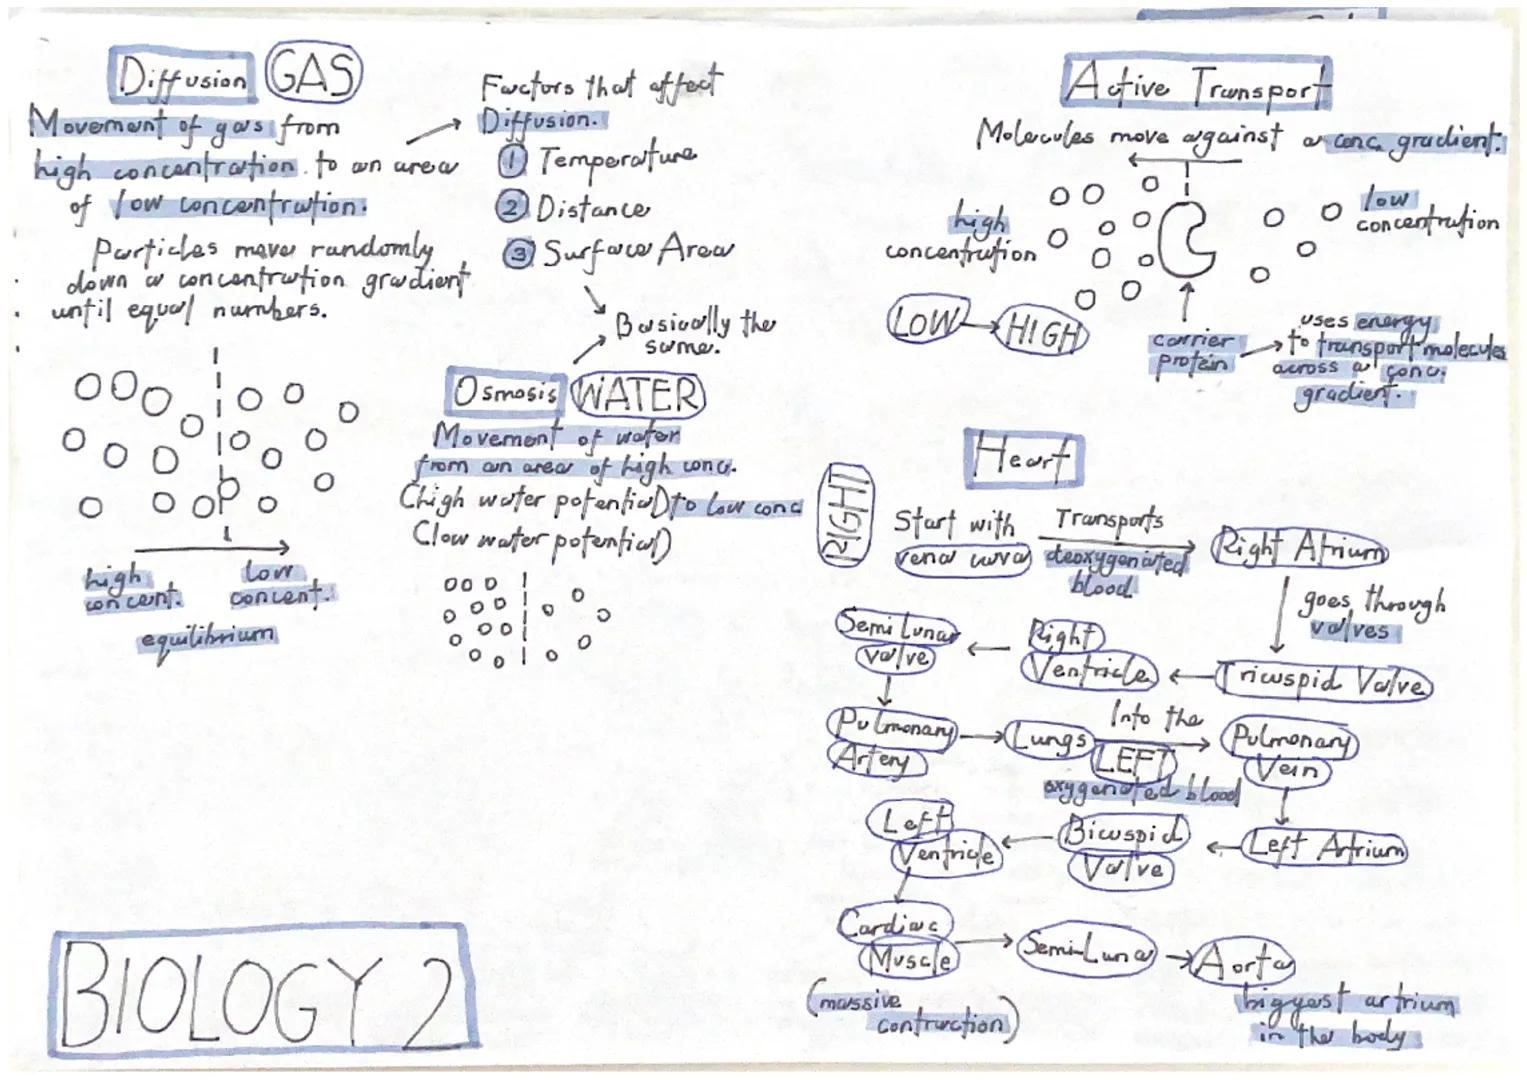 Diffusion GAS
Movement of gas from
high concentration to an area
of low concentration.
Particles move randomly
down a concentration gradient
until equal numbers.
high concent.
low concent.
equilibrium
Factors that affect
Diffusion.
1 Temperature
2 Distance
3 Surface Area
Basically the
same.
Osmosis WATER
Movement of water
from an area of high conc.
(high water potential) to low conc
(low water potential)
BIOLOGY 2
Active Transport
Molecules move against a conc. gradient.
high
concentration
low
concentration
LOW → HIGH
carrier
protein
uses energy
to transport molecules
across a conc.
gradient.
Heart
RIGHT
Start with
vena cava
Transports
deoxygenated
blood.
Right Atrium
goes through
valves
Tricuspid Valve
Right
Ventricle
Semi Lunar
valve
Pulmonary
Artery
Lungs
Into the
LEFT
oxygenated blood
Pulmonary
Vein
Left Artrium
Bicuspid
Valve
Left
Ventricle
Cardiac
Muscle
(massive
contraction)
Semi-Luna
Aorta
biggest artrium
in the body